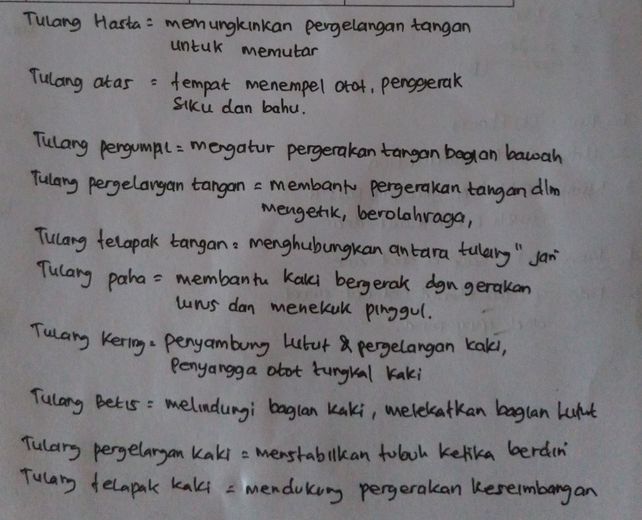 Tulang Hasta = memungkinkan pergelangan tangan
untuk memutar
Tulang atas = tempat menempel otot, penggerak
siku dan bahu.
Tulang pengumpil = mengatur pergerakan tangan bagian bawah
Tulang pergelangan tangan = membantu pergerakan tangan dlm
mengetik, berolahraga,
Tulang telapak tangan = menghubungkan antara tulang" jari
Tulang paha = membantu kaki bergerak dgn gerakan
lurus dan menekuk pinggul.
Tulang Kering = penyambung lutut & pergelangan kaki,
Penyangga otot tungkal kaki
Tulang Betis = melindungi bagian kaki, melekatkan bagian lutut
Tulang pergelangan kaki = menstabilkan tubuh ketika berdiri
Tulang telapak kaki = mendukung pergerakan keseimbangan